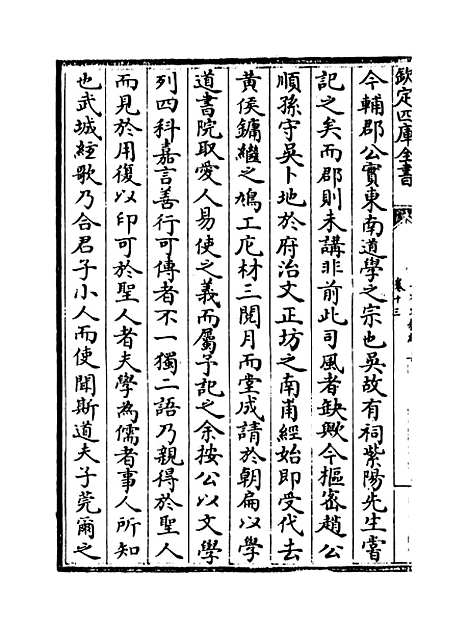 欽定四庫全書
卷十三
今輔郡公實東南道學之宗也吳故有祠紫陽先生嘗
記之矣而郡則未講非前此司風者缺歟今樞密趙公
順孫守吳卜地於府治文正坊之南甫經始即受代去
黃侯鏞繼之鳩工庀材三閱月而堂成請於朝扁以學
道書院取愛人易使之義而屬予記之余按公以文學
列四科嘉言善行可傳者不一獨二語乃親得於聖人
而見於用復以印可於聖人者夫學為儒者事人所知
也武城絃歌乃合君子小人而使聞斯道夫子莞爾之